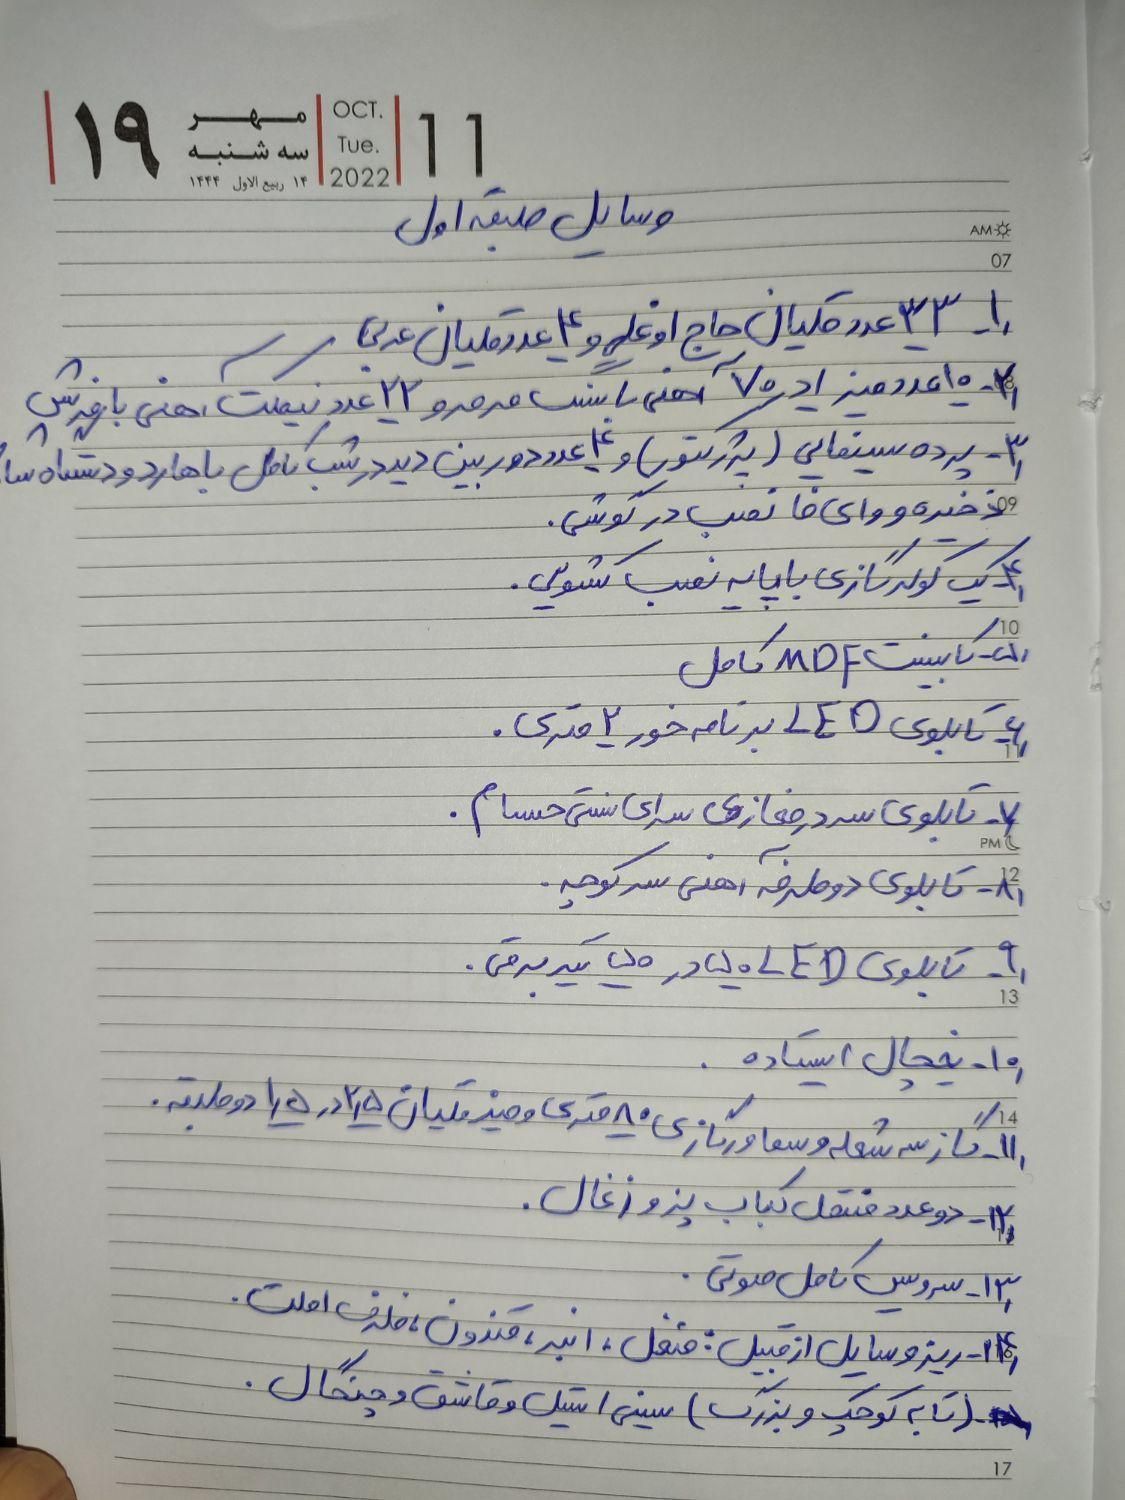 ۱۹
مهر
سه شنبه
۱۴ ربیع الاول ۱۴۴۴
OCT.
Tue.
2022
11
وسایل طبقه اول
AM
07
۱- ۳۳ عدد قلیان حاج اوغلی و ۴ عدد قلیان عربی
۲- ۱۰ عدد میز ۱ در ۷۰ آهنی با مرمر و ۲۲ عدد نیمکت آهنی با فرش
۳- پرده سینمایی (پرژکتور) و ۴ عدد دوربین دید در شب کامل با هارد و دستگاه
09
ذخیره و وای فا نصب در گوشی.
۴- یک کولر گازی با پایه نصب کشویی.
10
۵- کابینت MDF کامل
۶- تابلوی LED برنامه خور ۲ متری.
11
۷- تابلوی سردر مغازه سرای سنتی حسام.
PM
12
۸- تابلوی دوطرفه آهنی سر کوچه.
۹- تابلوی LED ۵۰ در ۵۰ تیر برقی.
13
۱۰- یخچال ایستاده.
14
۱۱- گاز سه شعله و سماور گازی ۸۰ متری و میز قلیان ۲/۵ در ۱/۵ دو طبقه.
۱۲- دو عدد منقل کباب پز و زغال.
۱۳- سرویس کامل صوتی.
۱۴- ریز وسایل از قبیل: منقل، انبر، قندون، ظرف املت.
(تابه کوچک و بزرگ) سینی استیل و قاشق و چنگال.
17